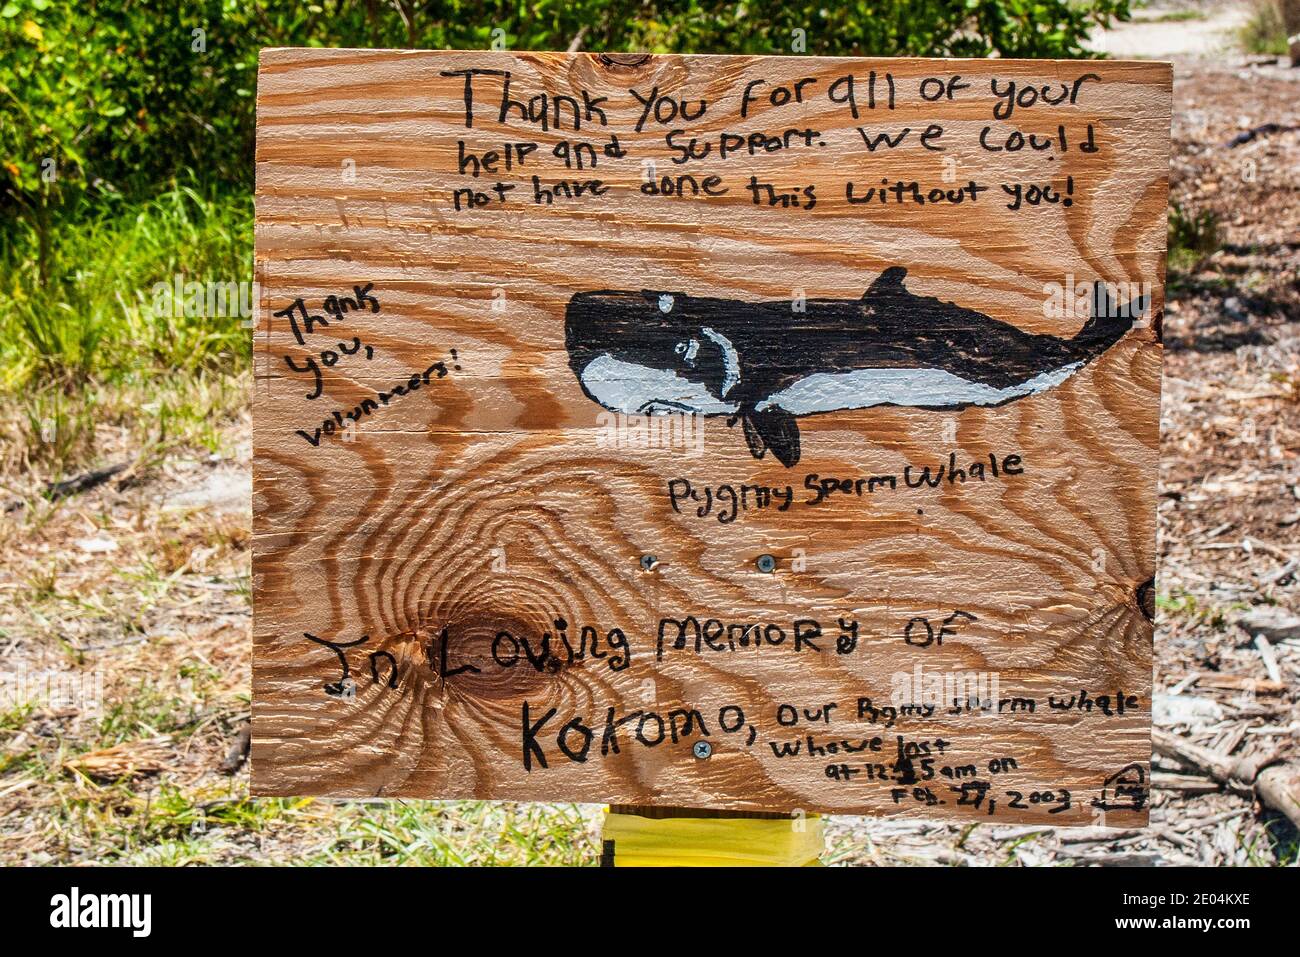 Thank you for all of your
help and support. We could
not have done this without you!
Thank
you,
volunteers!
Pygmy Sperm Whale
In Loving memory of
Kokomo, our Pygmy sperm whale
Who we lost
at 12: 5 am on
Feb. 27, 2003
alamy
Image ID: 2E04KXE
www.alamy.com